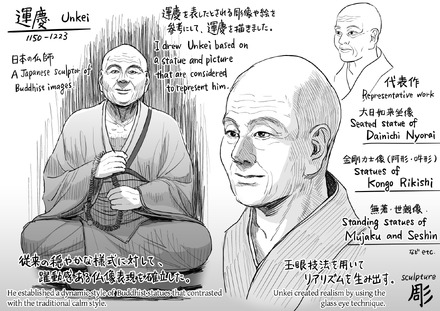 運慶 Unkei
1150-1223
日本の仏師
A Japanese sculptor of
Buddhist images
運慶を表したとされる彫像や絵を
参考にして、運慶を描きました。
I drew Unkei based on
a statue and picture
that are considered
to represent him.
代表作
Representative work
大日如来坐像
Seated statue of
Dainichi Nyorai
金剛力士像(阿形・吽形)
Statues of
Kongo Rikishi
無著・世親像
Standing statues of
Mujaku and Seshin
など etc.
従来の穏やかな様式に対して、
躍動感ある仏像表現を確立した。
He established a dynamic style of Buddhist statues that contrasted
with the traditional calm style.
玉眼技法を用いて
リアリズムを生み出す。
Unkei created realism by using the
glass eye technique.
sculpture
彫